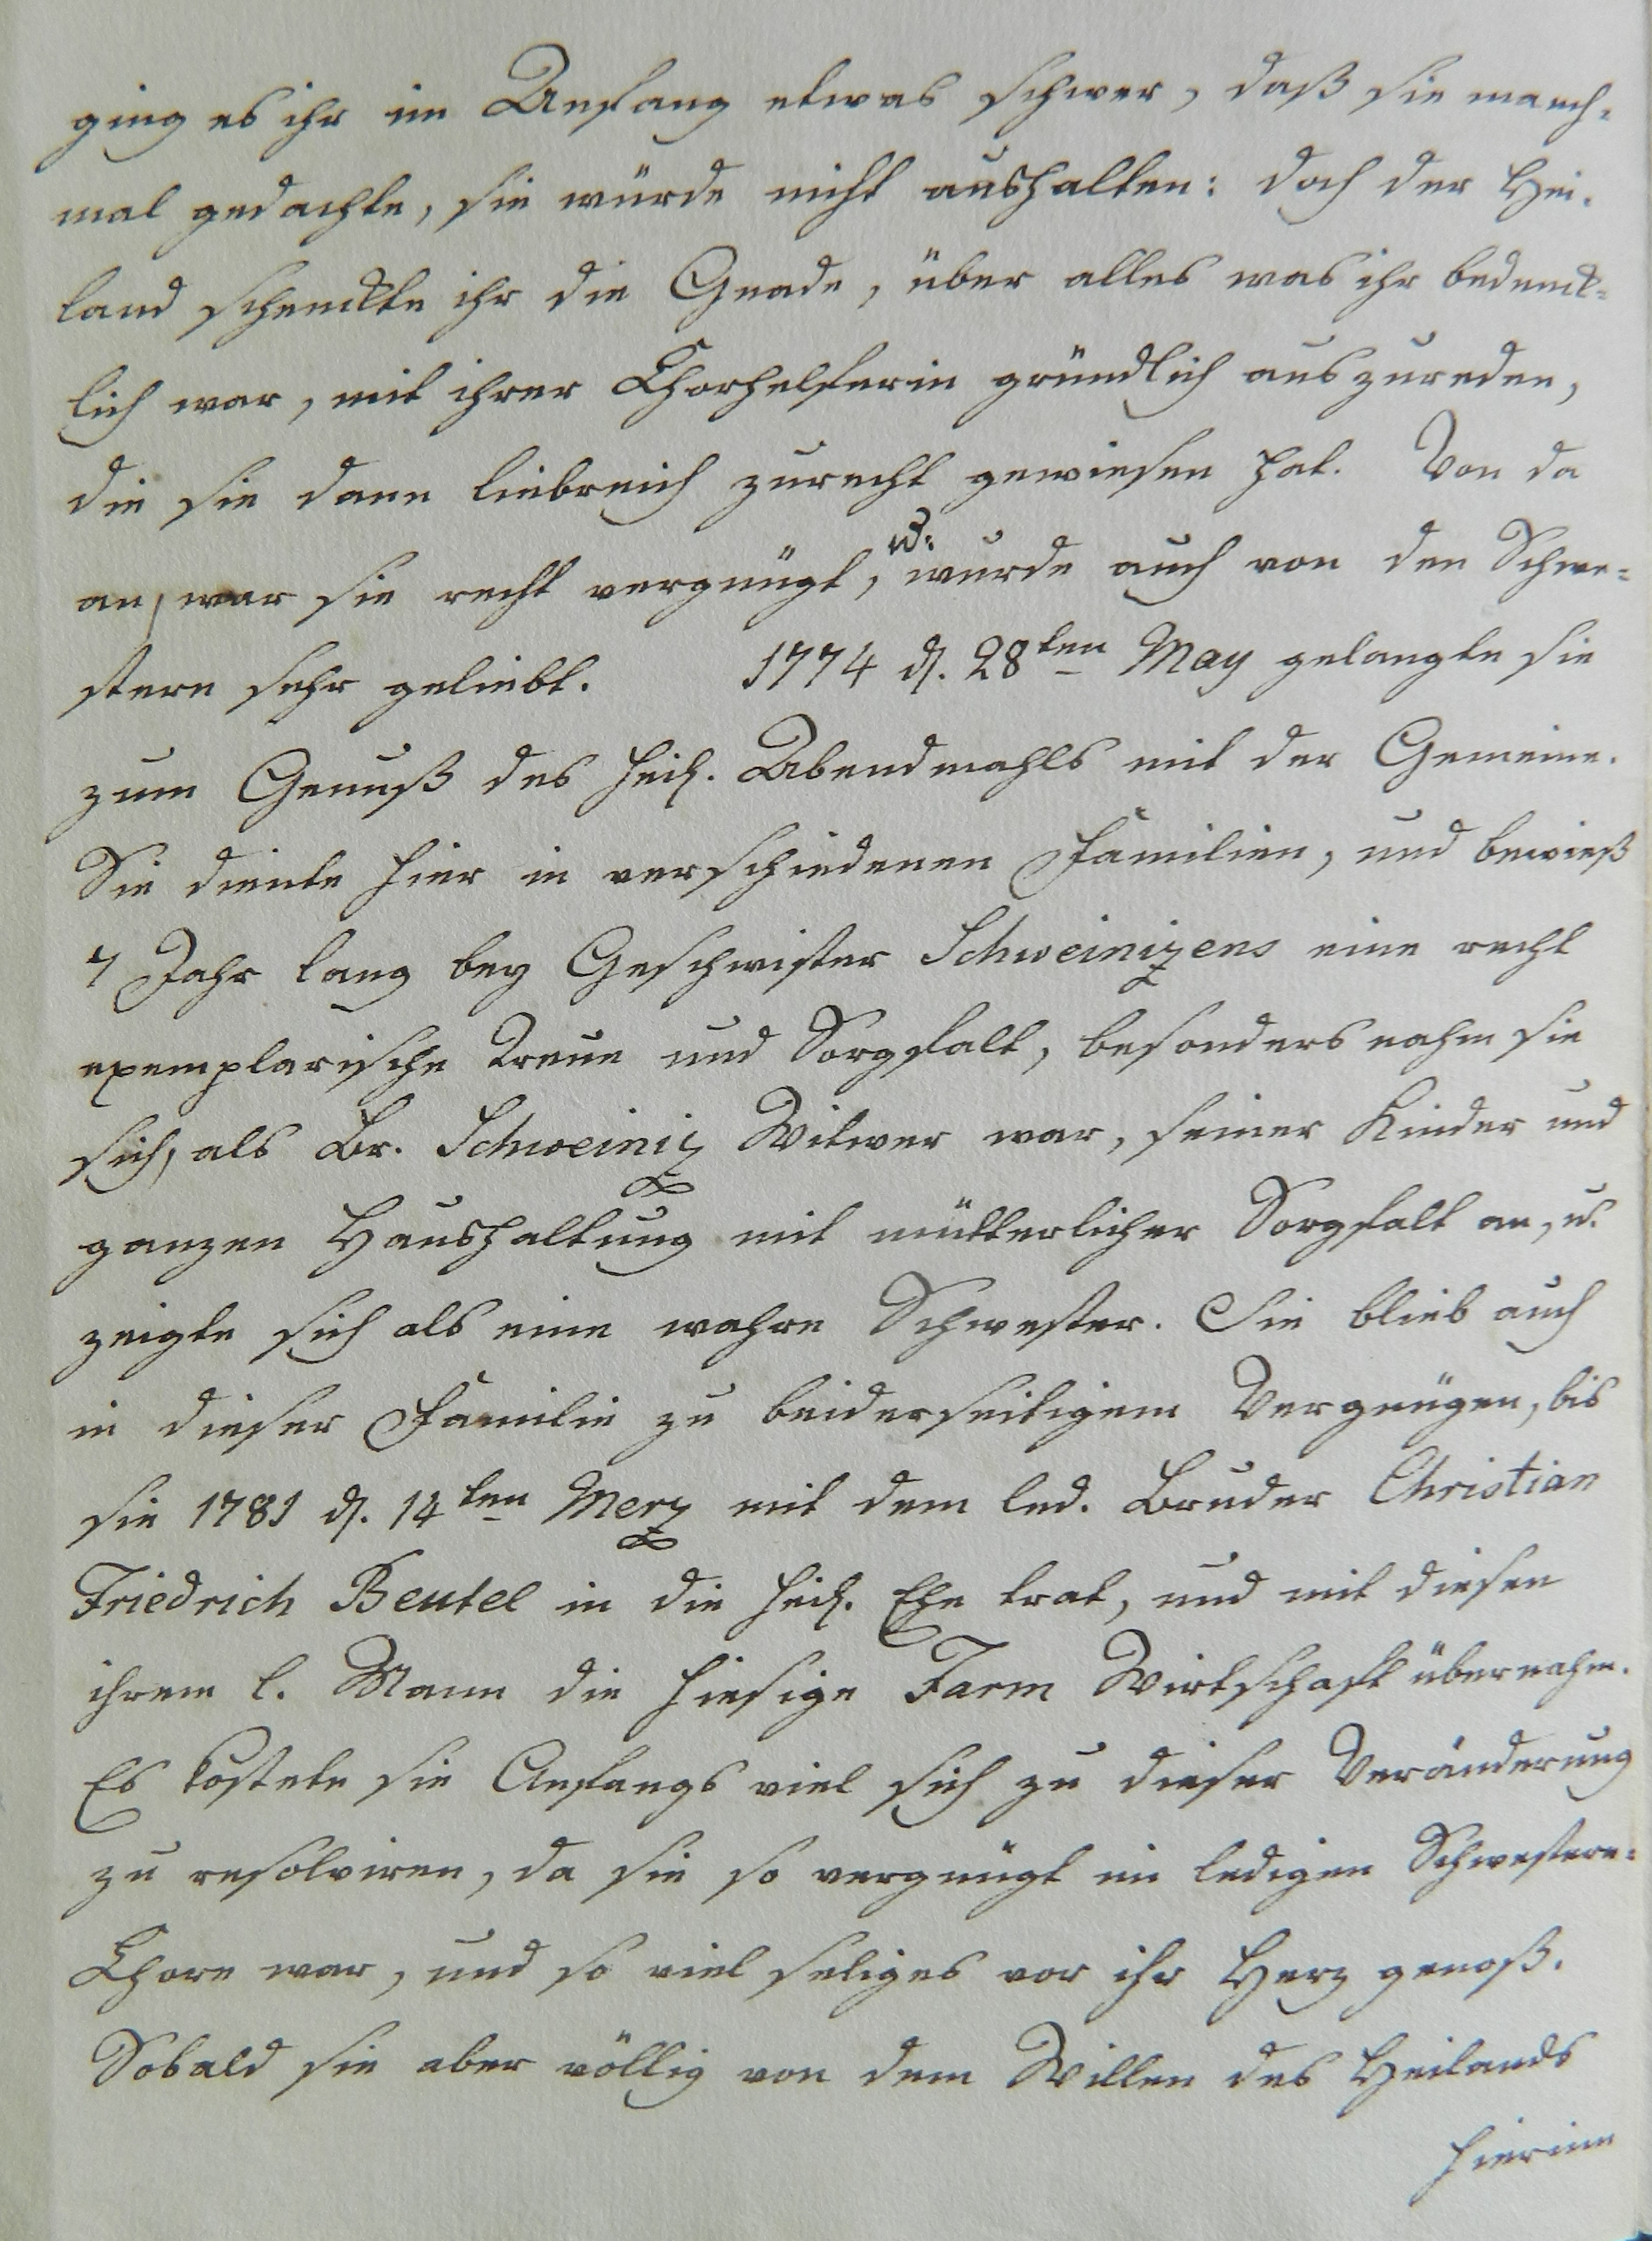 ging es ihr im Anfang etwas schwer, daß sie manch-
mal gedachte, sie würde nicht aushalten: doch der Hei-
land schenckte ihr die Gnade, über alles was ihr bedenck-
lich war, mit ihrer Chorhelferin gründlich auszureden,
die sie dann liebreich zurecht gewiesen hat. Von da
an, war sie recht vergnügt, u. wurde auch von den Schwe-
stern sehr geliebt. 1774 d. 28ten May gelangte sie
zum Genuß des heil. Abendmahls mit der Gemeine.
Sie diente hier in verschiedenen Familien, und bewieß
4 Jahr lang bey Geschwister Schweinizens eine recht
exemplarische Treue und Sorgfalt, besonders nahm sie
sich, als Br. Schweiniz Witwer war, seiner Kinder und
ganzen Haushaltung mit mütterlicher Sorgfalt an, u.
zeigte sich als eine wahre Schwester. Sie blieb auch
in dieser Familie zu beiderseitigem Vergnügen, bis
sie 1781 d. 14ten Merz mit dem led. Bruder Christian
Friedrich Beutel in die heil. Ehe trat, und mit diesen
ihrem l. Mann die hiesige Farm Wirtschaft übernahm.
Es kostete sie Anfangs viel sich zu dieser Veränderung
zu resolviren, da sie so vergnügt im ledigen Schwestern-
Chore war, und so viel seliges vor ihr Herz genoß.
Sobald sie aber völlig von dem Willen des Heilands
hierinn